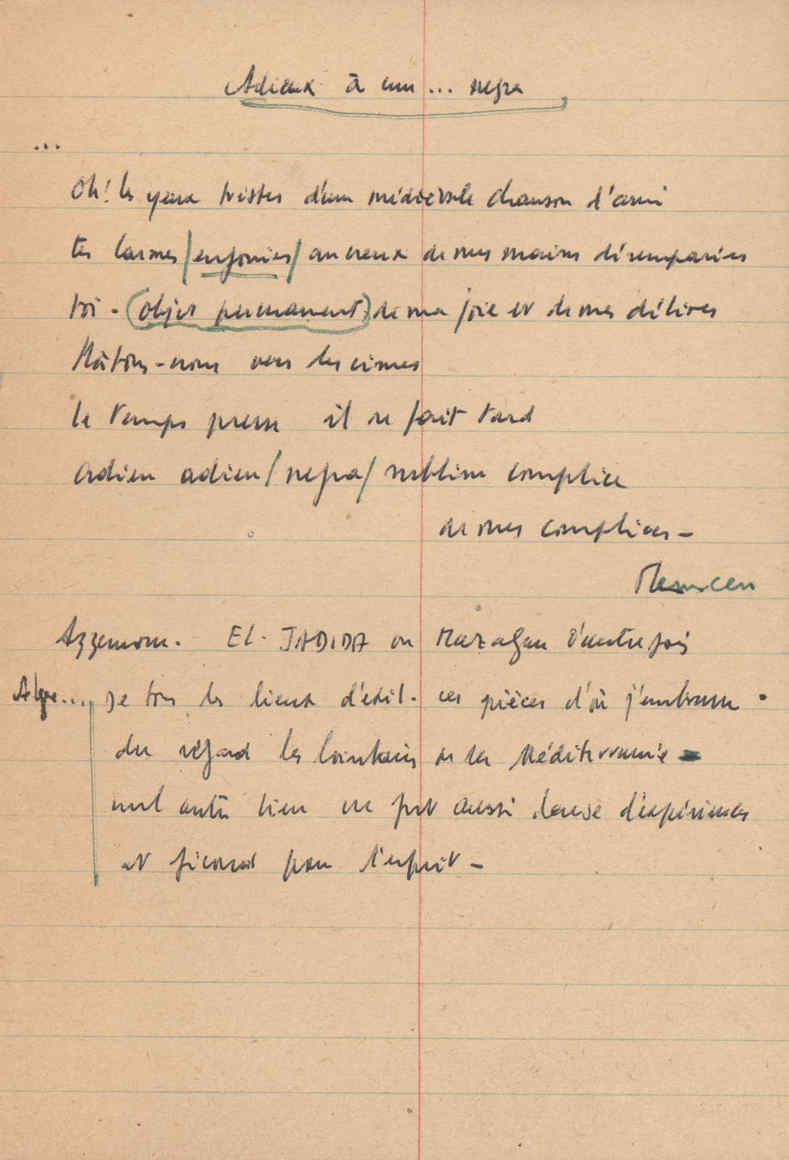 Adieux à une ... negra
...
Oh! les yeux tristes d'une médiévale chanson d'ami
tes larmes / enfouies / au creux de mes mains désemparées
toi - (objet permanent) de ma joie et de mes délires
Hâtons-nous vers les cimes
le temps presse il se fait tard
adieu adieu / negra / sublime complice
de mes complices -
Azzemour. EL-JADIDA ou Mazagan d'autrefois
Alger... De tous les lieux d'exil. ces pièces d'où j'embrasse
du regard les lointains de la Méditerranée -
nul autre lieu ne fut aussi dense d'expériences
et fécond pour l'esprit -